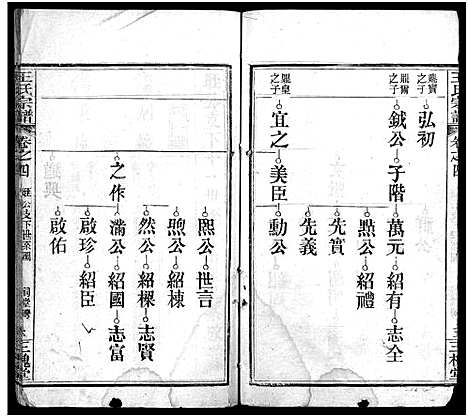 王氏宗譜
卷之四
三槐堂
之子
弘初
之子
鉞公 子階 萬元 紹有 志全
點公 紹禮
先實
先義
之子
宜之 美臣 動公
熙公 世言
煦公 紹棟
然公 紹樑 志賢
之作 滿公 紹國 志富
啟珍 紹臣
啟佑
王氏宗譜
卷之四
三槐堂